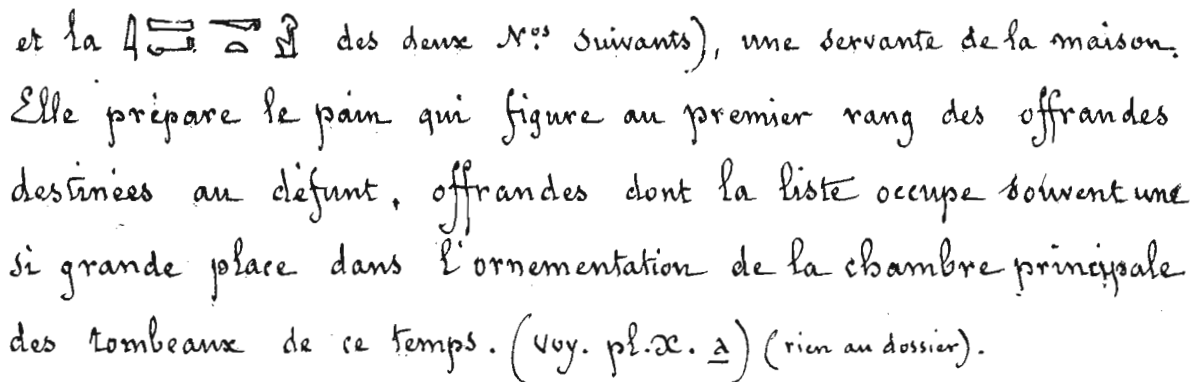 et la des deux Nos suivants), une servante de la maison.
Elle prépare le pain qui figure au premier rang des offrandes
destinées au défunt, offrandes dont la liste occupe souvent une
si grande place dans l'ornementation de la chambre principale
des tombeaux de ce temps. (voy. pl. x. a) (rien au dossier).